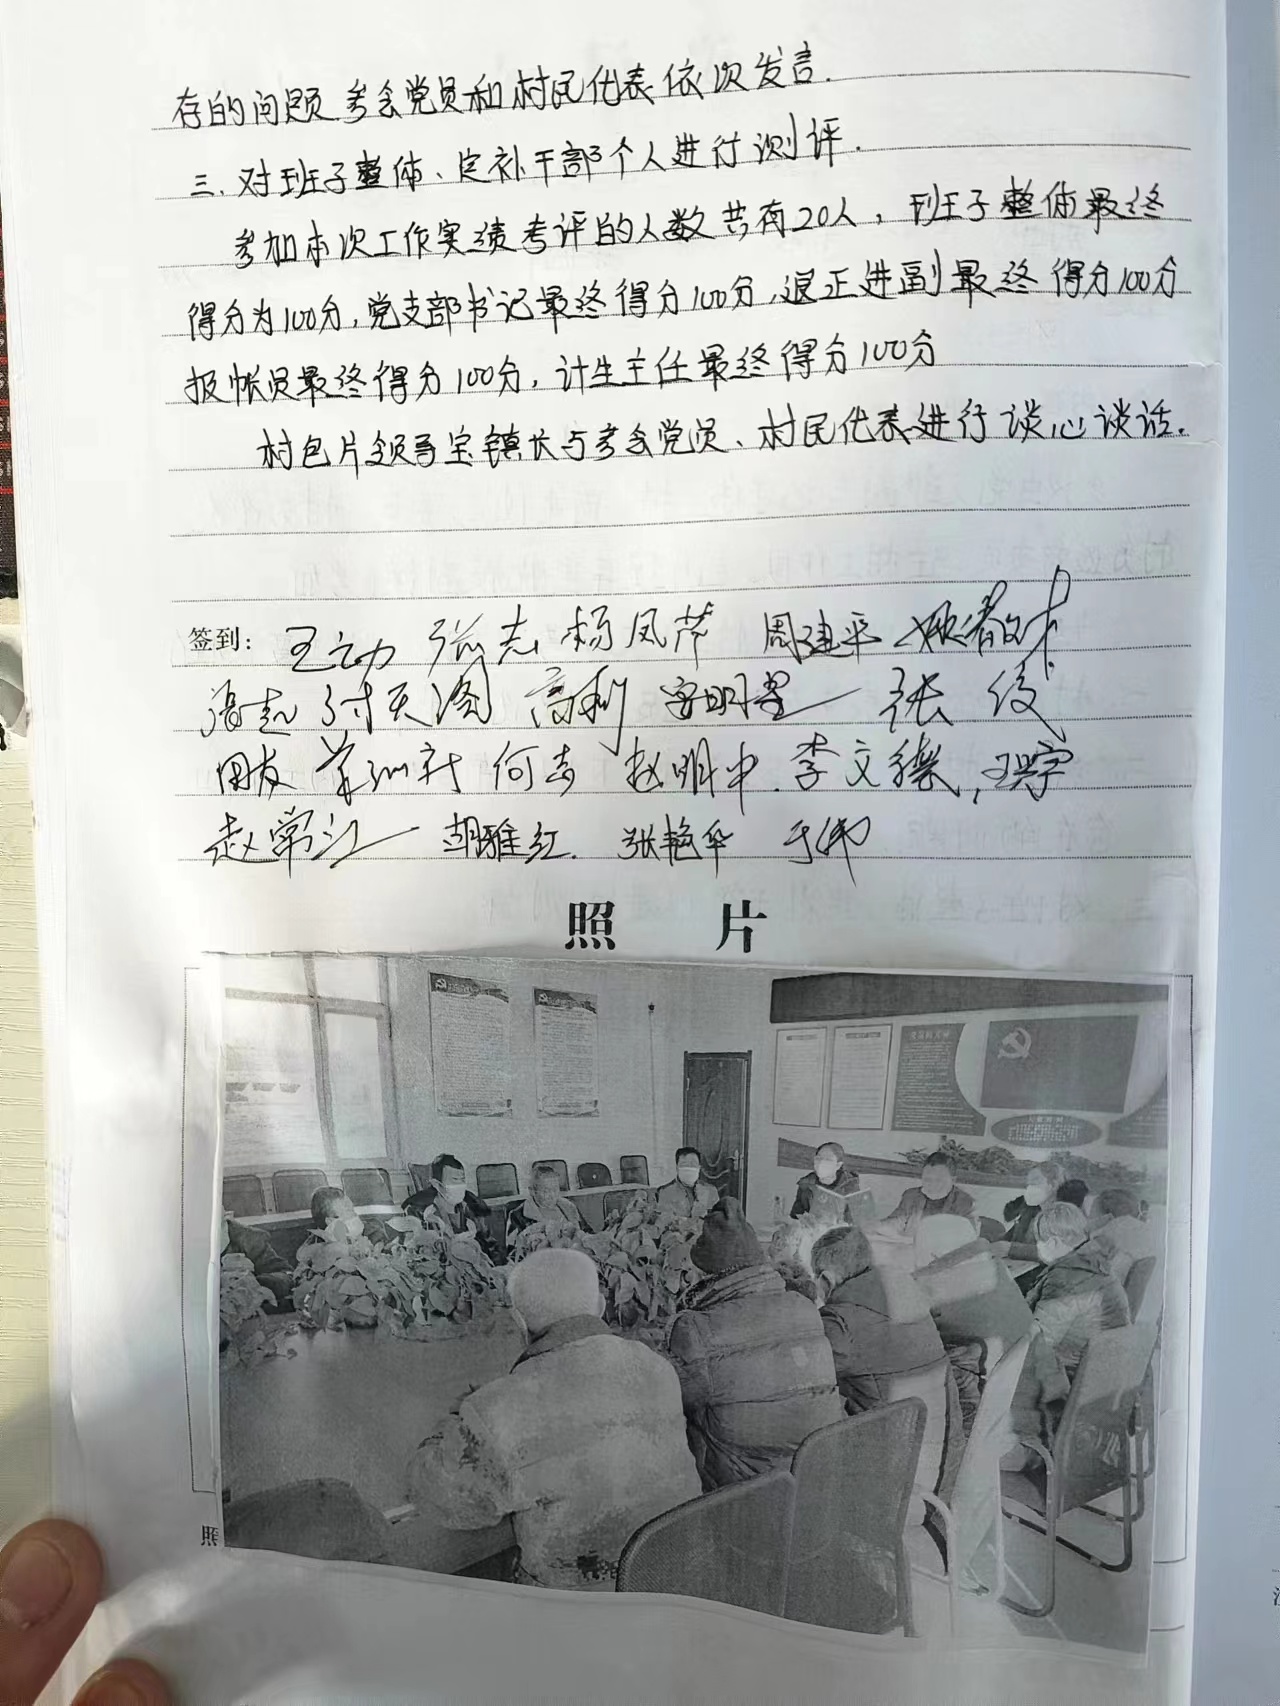 存的问题.考会党员和村民代表依次发言.
三.对班子整体、定补干部个人进行测评.
参加本次工作实绩考评的人数共有20人，班子整体最终
得分为100分,党支部书记最终得分100分,退正进副最终得分100分
报帐员最终得分100分,计生主任最终得分100分
村包片领导宝镇长与考会党员、村民代表进行谈心谈话.
签到： 王立功 张志 杨凤芹 周建平
高利 张俊
何志 赵明中.李文德,王宇
赵常江 胡雅红. 张艳华 于伟
照 片
照